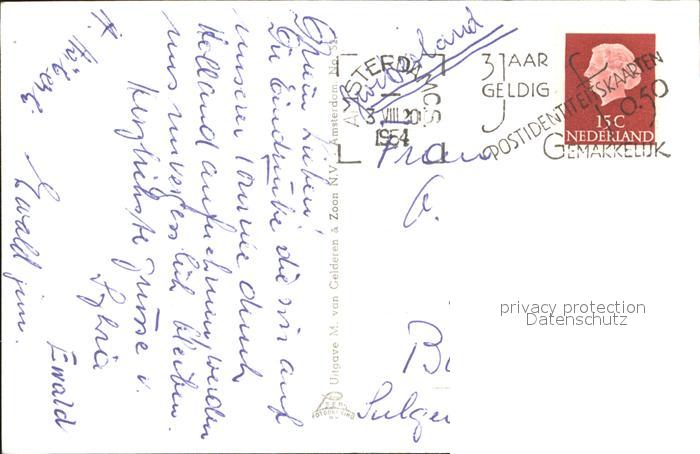 Meine Lieben!
Die Eindrücke die wir auf
unserer Tournee durch
Holland aufnehmen werden
uns unvergesslich bleiben.
Herzlichste Grüsse v.
Sylvia Ewald
Ewald jun.
für
Uitgave M. van Gelderen & Zoon N.V. Amsterdam No.
AMSTERDAM C.S.
3 VIII 20
1954
3 JAAR
GELDIG
POSTIDENTITEITSKAARTEN
f 0.50
GEMAKKELIJK
15 C
NEDERLAND
Frau
privacy protection
Datenschutz